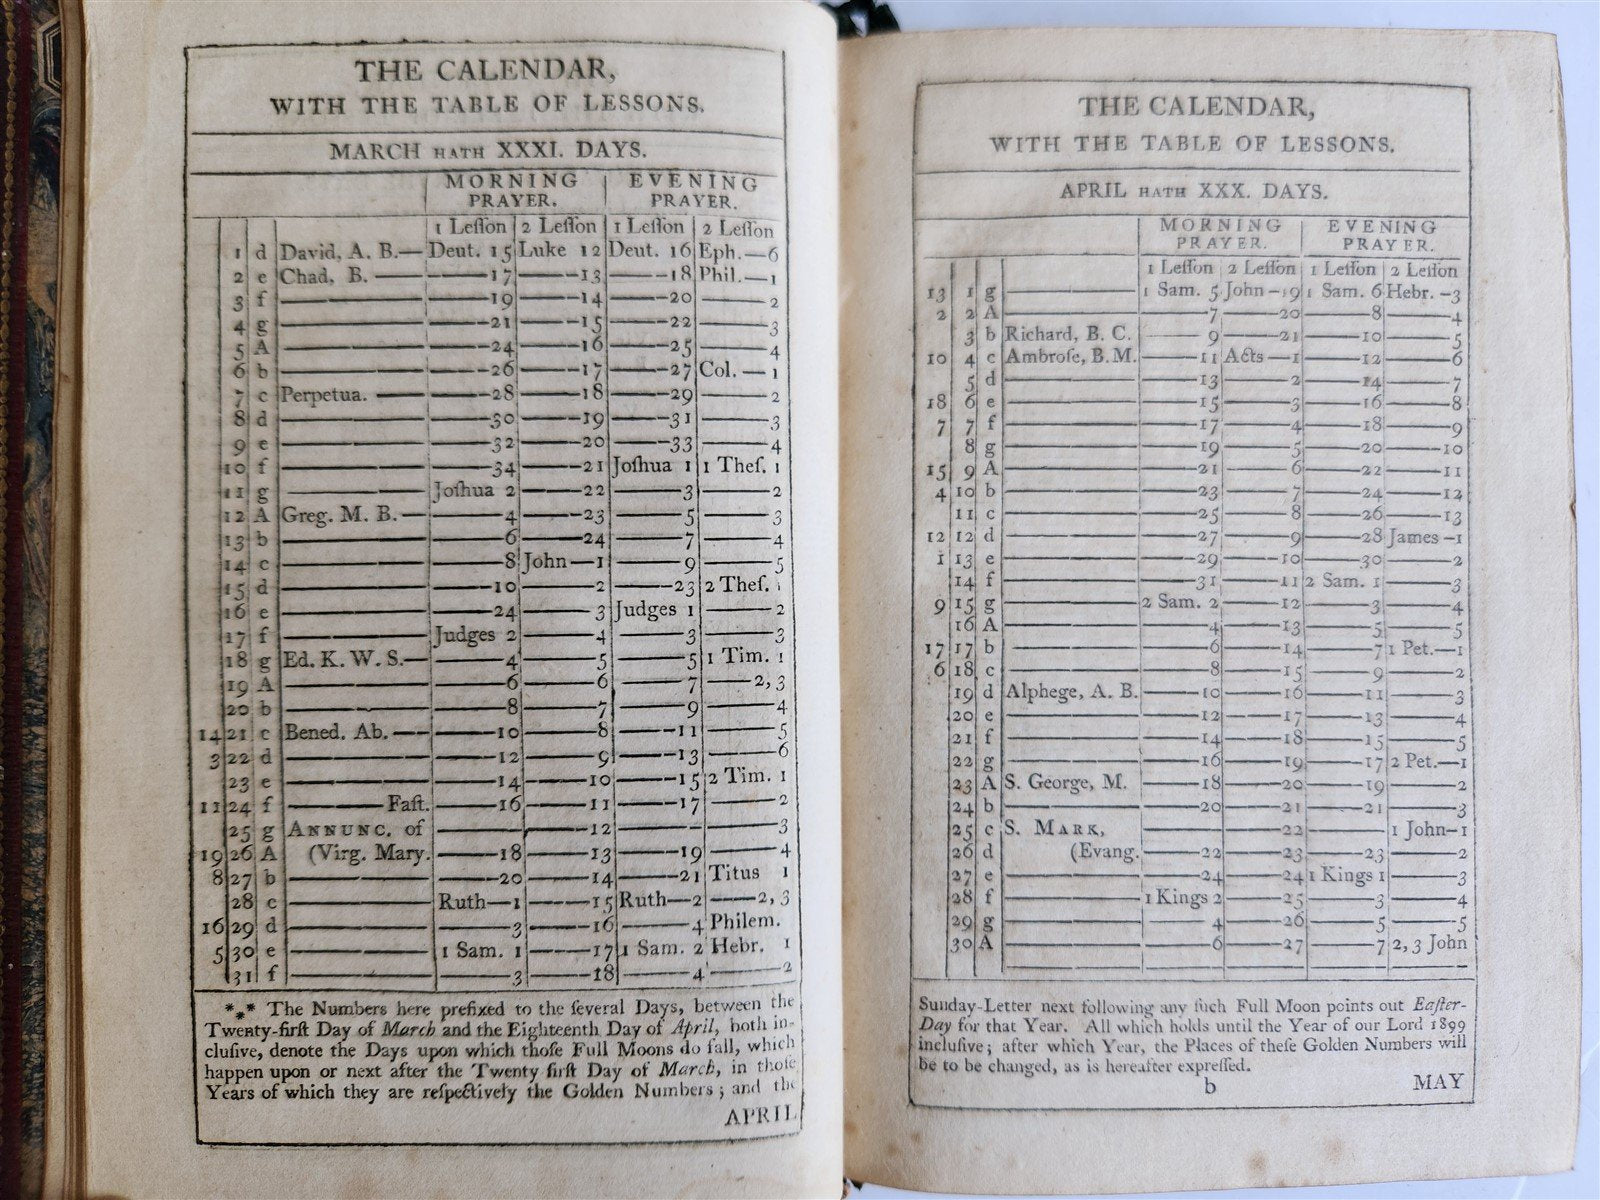 THE CALENDAR,
WITH THE TABLE OF LESSONS.
MARCH HATH XXXI. DAYS.
MORNING PRAYER. EVENING PRAYER.
1 Leſſon 2 Leſſon 1 Leſſon 2 Leſſon
1 d David, A. B.— Deut. 15 Luke 12 Deut. 16 Eph.—6
2 e Chad, B. —17 —13 —18 Phil.—1
3 f —19 —14 —20 —2
4 g —21 —15 —22 —3
5 A —24 —16 —25 —4
6 b —26 —17 —27 Col.—1
7 c Perpetua. —28 —18 —29 —2
8 d —30 —19 —31 —3
9 e —32 —20 —33 —4
10 f —34 —21 Joſhua 1 1 Theſ. 1
11 g Joſhua 2 —22 —3 —2
12 A Greg. M. B.— —4 —23 —5 —3
13 b —6 —24 —7 —4
14 c —8 John—1 —9 —5
15 d —10 —2 —23 2 Theſ. 1
16 e —24 —3 Judges 1 —2
17 f Judges 2 —4 —3 —3
18 g Ed. K. W. S.— —4 —5 —5 1 Tim. 1
19 A —6 —6 —7 —2, 3
20 b —8 —7 —9 —4
14 21 c Bened. Ab. —10 —8 —11 —5
3 22 d —12 —9 —13 —6
23 e —14 —10 —15 2 Tim. 1
11 24 f — Faſt. —16 —11 —17 —2
25 g ANNUNC. of — —12 — —3
19 26 A (Virg. Mary. —18 —13 —19 —4
8 27 b —20 —14 —21 Titus 1
28 c Ruth—1 —15 Ruth—2 —2, 3
16 29 d —3 —16 —4 Philem.
5 30 e 1 Sam. 1 —17 1 Sam. 2 Hebr. 1
31 f —3 —18 —4 —2
*⁎* The Numbers here prefixed to the ſeveral Days, between the
Twenty-firſt Day of March and the Eighteenth Day of April, both in-
cluſive, denote the Days upon which thoſe Full Moons do fall, which
happen upon or next after the Twenty firſt Day of March, in thoſe
Years of which they are reſpectively the Golden Numbers; and the
APRIL
THE CALENDAR,
WITH THE TABLE OF LESSONS.
APRIL HATH XXX. DAYS.
MORNING PRAYER. EVENING PRAYER.
1 Leſſon 2 Leſſon 1 Leſſon 2 Leſſon
13 1 g — 1 Sam. 5 John—19 1 Sam. 6 Hebr.—3
2 2 A —7 —20 —8 —4
3 b Richard, B. C. —9 —21 —10 —5
10 4 c Ambroſe, B. M. —11 Acts—1 —12 —6
5 d —13 —2 —14 —7
18 6 e —15 —3 —16 —8
7 7 f —17 —4 —18 —9
8 g —19 —5 —20 —10
15 9 A —21 —6 —22 —11
4 10 b —23 —7 —24 —12
11 c —25 —8 —26 —13
12 12 d —27 —9 —28 James—1
1 13 e —29 —10 —30 —2
14 f —31 —11 2 Sam. 1 —3
9 15 g 2 Sam. 2 —12 —3 —4
16 A —4 —13 —5 —5
17 17 b —6 —14 —7 1 Pet.—1
6 18 c —8 —15 —9 —2
19 d Alphege, A. B. —10 —16 —11 —3
20 e —12 —17 —13 —4
21 f —14 —18 —15 —5
22 g —16 —19 —17 2 Pet.—1
23 A S. George, M. —18 —20 —19 —2
24 b —20 —21 —21 —3
25 c S. MARK, — —22 — 1 John—1
26 d (Evang. —22 —23 —23 —2
27 e —24 —24 1 Kings 1 —3
28 f 1 Kings 2 —25 —3 —4
29 g —4 —26 —5 —5
30 A —6 —27 —7 2, 3 John
Sunday-Letter next following any ſuch Full Moon points out Eaſter-
Day for that Year. All which holds until the Year of our Lord 1899
incluſive; after which Year, the Places of theſe Golden Numbers will
be to be changed, as is hereafter expreſſed.
b MAY